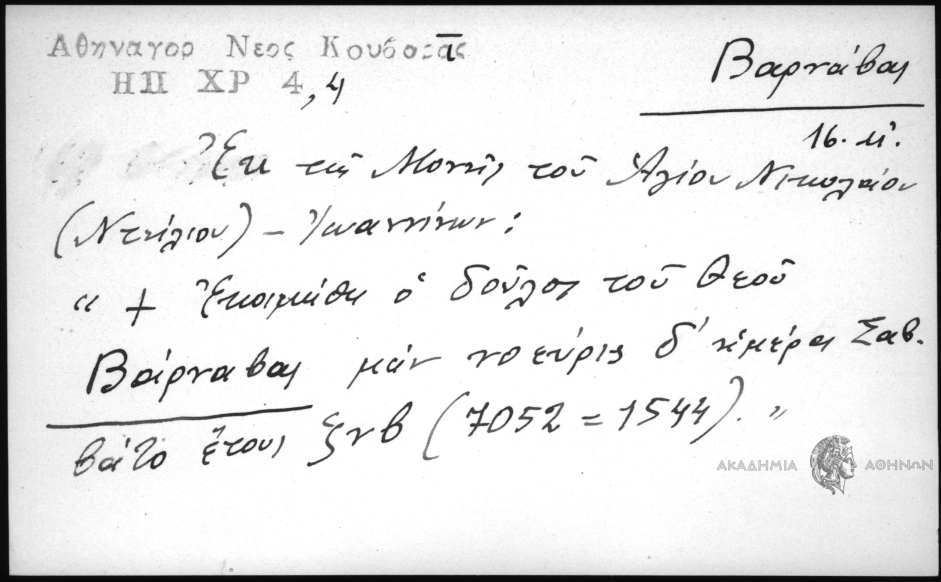 Αθηναγορ Νεος Κουβαρᾶς
ΗΠ ΧΡ 4,4
Βαρνάβας
16. μ.
Ἐκ τῆς Μονῆς τοῦ Ἁγίου Νικολάου
(Ντίλιου) – Ἰωαννίνων:
“ + Ἐκοιμήθη ὁ δοῦλος τοῦ Θεοῦ
Βάρναβας μὴν νοεύρις δ' ἡμέρα Σαβ.
βάτο ἔτους ζνβ (7052 = 1544). ”
ΑΚΑΔΗΜΙΑ ΑΘΗΝΩΝ